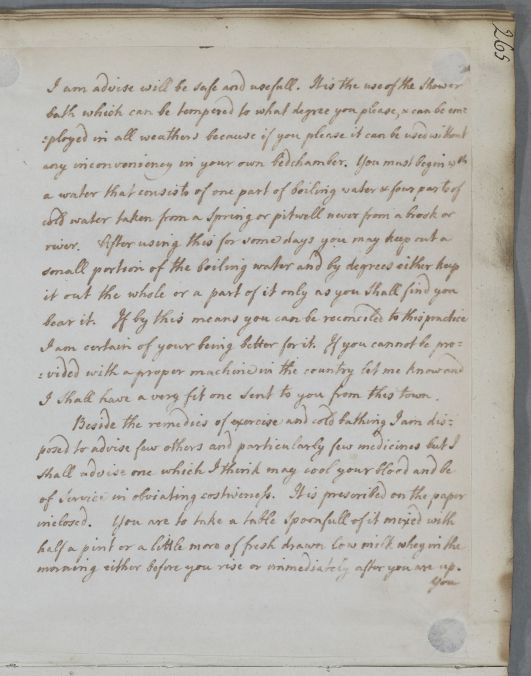 265
I am advise will be safe and usefull. It is the use of the Shower
bath which can be tempered to what degree you please, & can be em=
=ployed in all weathers because if you please it can be used without
any inconveniency in your own bedchamber. You must begin wth
a water that consists of one part of boiling water & four parts of
cold water taken from a Spring or pitwell never from a brook or
river. After using this for some days you may keep out a
small portion of the boiling water and by degrees either keep
it out the whole or a part of it only as you shall find you
bear it. If by this means you can be reconciled to this practice
I am certain of your being better for it. If you cannot be pro=
=vided with a proper machine in the country let me know and
I shall have a very fit one sent to you from this town.
Beside the remedies of exercise and cold bathing I am dis=
posed to advise few others and particularly few medicines but I
shall advise one which I think may cool your blood and be
of Service in obviating costiveness. It is prescribed on the paper
inclosed. You are to take a table spoonfull of it mixed with
half a pint or a little more of fresh drawn Cow milk whey in the
morning either before you rise or immediately after you are up.
You